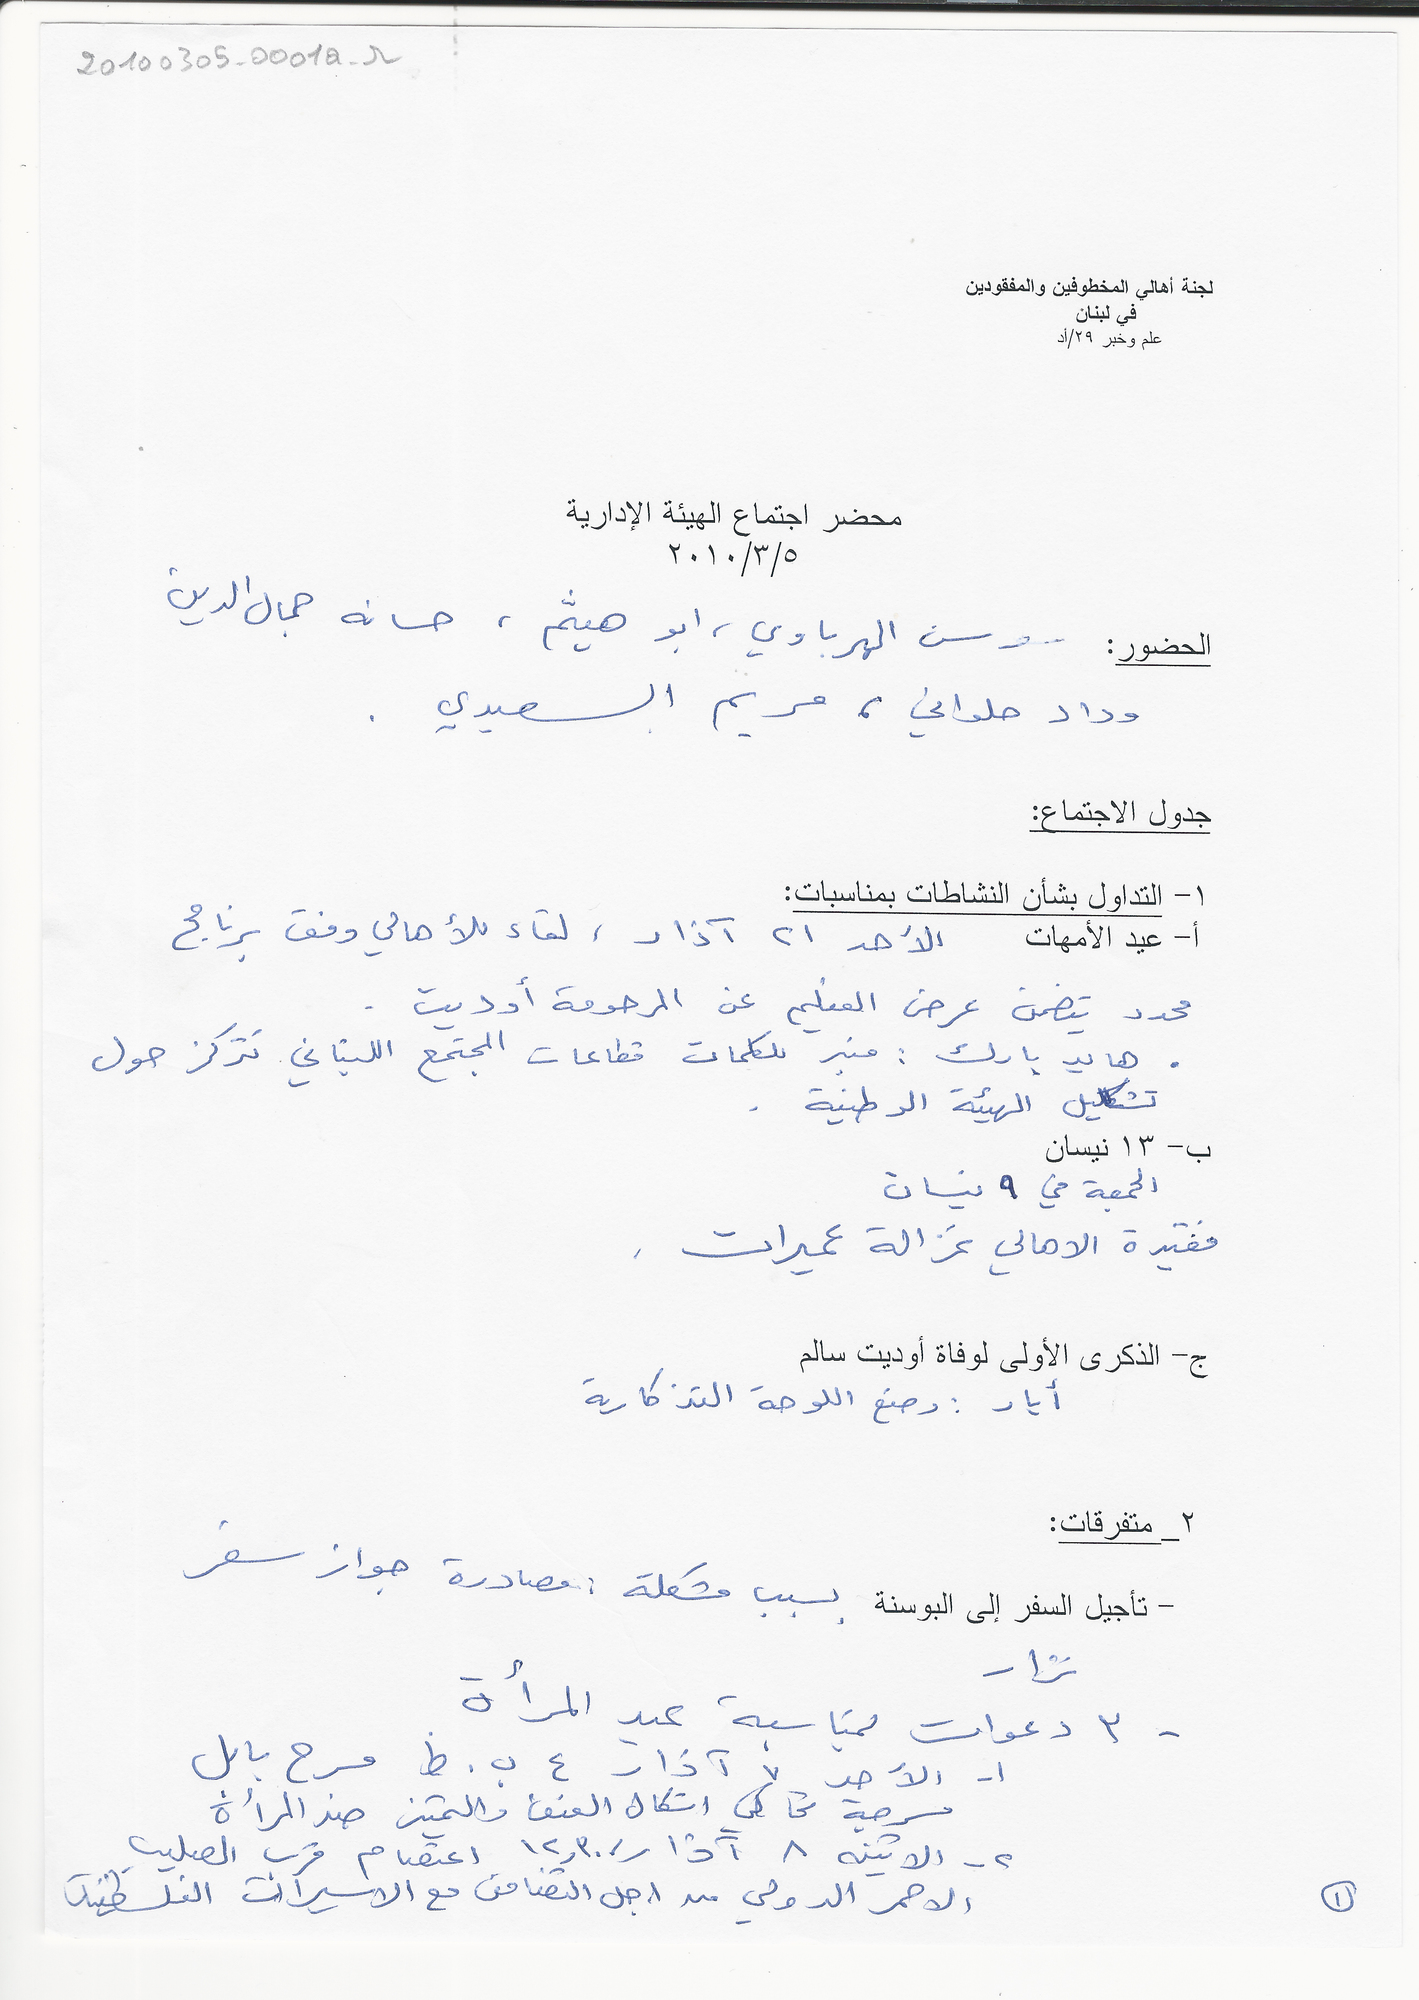 20100305_0001a_r
لجنة أهالي المخطوفين والمفقودين
في لبنان
علم وخبر ٢٩/أد
محضر اجتماع الهيئة الإدارية
٢٠١٠/٣/٥
الحضور: سوسن الهرباوي، ابو هيثم، حسانه جمال الدين
وداد حلواني، مريم السعيدي.
جدول الاجتماع:
١- التداول بشأن النشاطات بمناسبات:
أ- عيد الأمهات الأحد ٢١ آذار، لقاء للأهالي وفق برنامج
محدد يتضمن عرض الفيلم عن المرحومة أوديت.
. هايد بارك: منبر لكلمات قطاعات المجتمع اللبناني تتركز حول
تشكيل الهيئة الوطنية.
ب- ١٣ نيسان
الجمعة في ٩ نيسان
فقيدة الاهالي غزالة عميرات.
ج- الذكرى الأولى لوفاة أوديت سالم
أيار: وضع اللوحة التذكارية
٢_ متفرقات:
- تأجيل السفر إلى البوسنة بسبب مشكلة: مصادرة جواز سفر
نزار
- ٣ دعوات لمناسبة عيد المرأة
١- الأحد ٧ آذار ٤ ب.ظ مسرح بابل
مسرحية تحاكي اشكال العنف والتمييز ضد المرأة
٢- الاثنين ٨ آذار ١٢,٣٠ اعتصام قرب الصليب
الاحمر الدولي من اجل التضامن مع الاسيرات الفلسطينيات
١